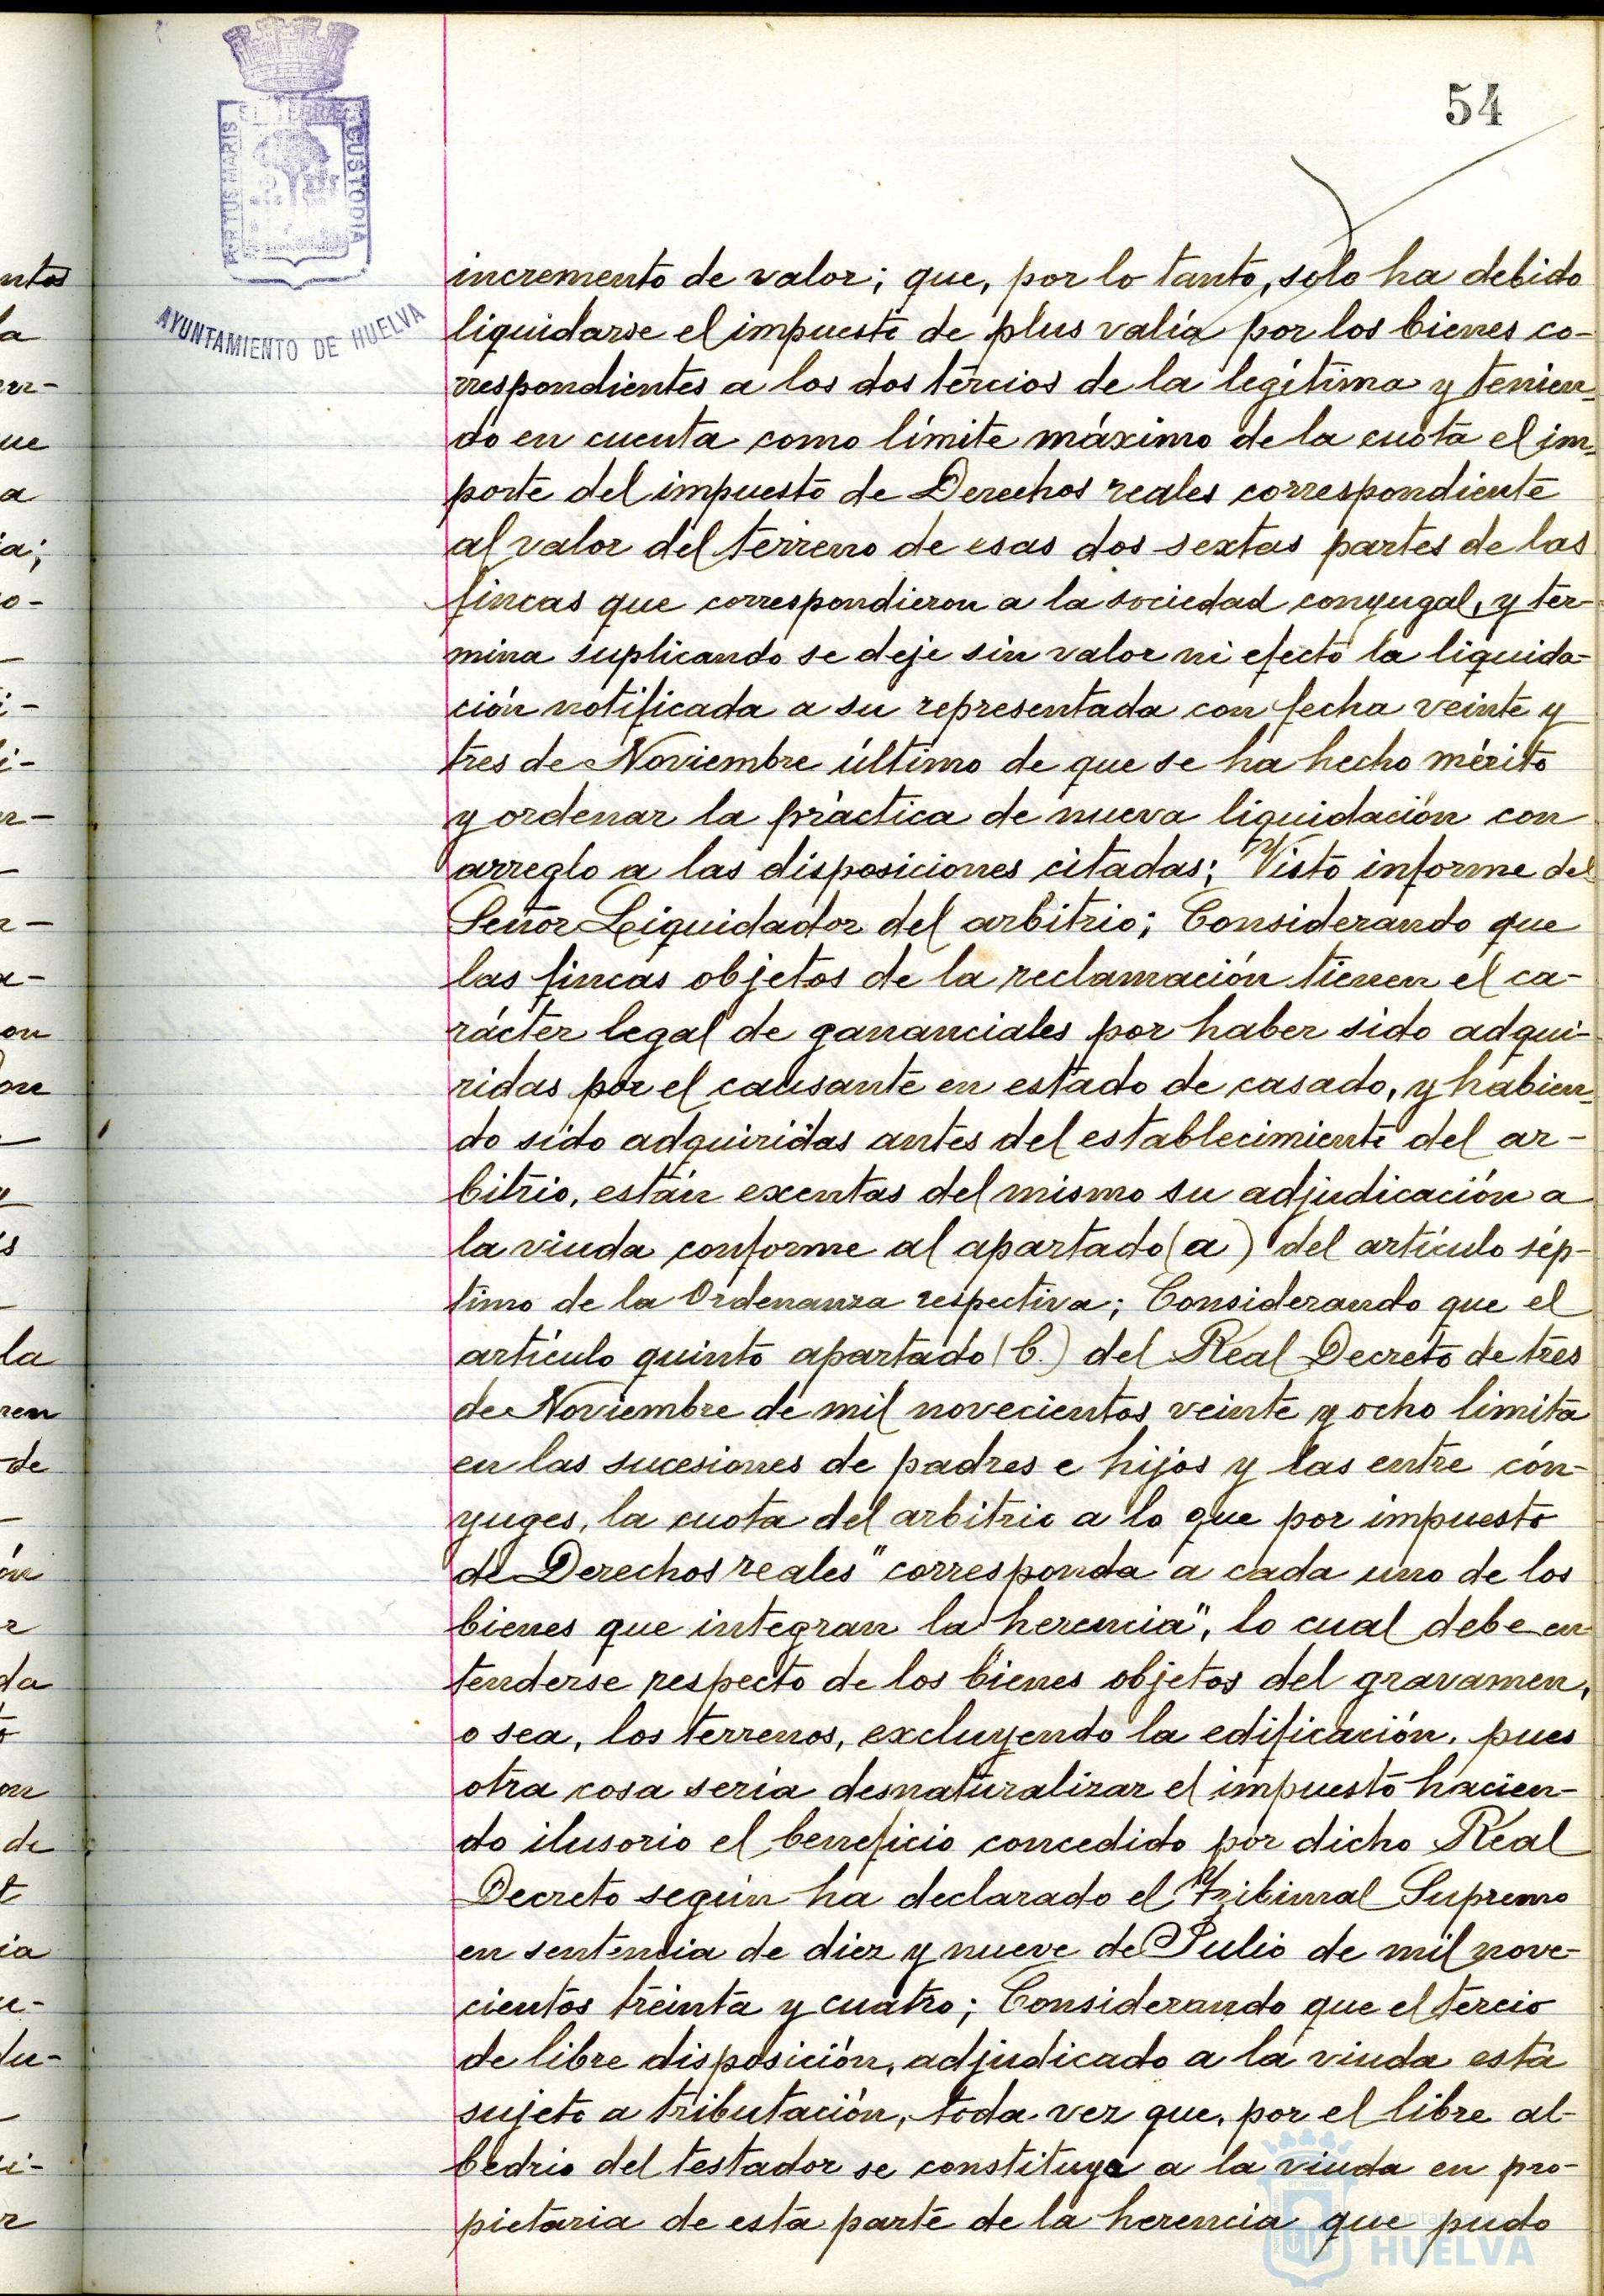 54
PORTUS MARIS ET TERRAE CUSTODIA
AYUNTAMIENTO DE HUELVA
incremento de valor; que, por lo tanto, solo ha debido
liquidarse el impuesto de plus valía por los bienes co-
rrespondientes a los dos tercios de la legítima y tenien-
do en cuenta como límite máximo de la cuota el im-
porte del impuesto de Derechos reales correspondiente
al valor del terreno de esas dos sextas partes de las
fincas que correspondieron a la sociedad conyugal, y ter-
mina suplicando se deje sin valor ni efecto la liquida-
ción notificada a su representada con fecha veinte y
tres de Noviembre último de que se ha hecho mérito
y ordenar la práctica de nueva liquidación con
arreglo a las disposiciones citadas; Visto informe del
Señor Liquidador del arbitrio; Considerando que
las fincas objetos de la reclamación tienen el ca-
rácter legal de gananciales por haber sido adqui-
ridas por el causante en estado de casado, y habien-
do sido adquiridas antes del establecimiento del ar-
bitrio, están exentas del mismo su adjudicación a
la viuda conforme al apartado (a) del artículo sép-
timo de la Ordenanza respectiva; Considerando que el
artículo quinto apartado (b.) del Real Decreto de tres
de Noviembre de mil novecientos veinte y ocho limita
en las sucesiones de padres e hijos y las entre cón-
yuges, la cuota del arbitrio a lo que por impuesto
de Derechos reales "corresponda a cada uno de los
bienes que integran la herencia", lo cual debe en-
tenderse respecto de los bienes objetos del gravamen,
o sea, los terrenos, excluyendo la edificación, pues
otra cosa sería desnaturalizar el impuesto hacien-
do ilusorio el beneficio concedido por dicho Real
Decreto según ha declarado el Tribunal Supremo
en sentencia de diez y nueve de Julio de mil nove-
cientos treinta y cuatro; Considerando que el tercio
de libre disposición, adjudicado a la viuda está
sujeto a tributación, toda vez que, por el libre al-
bedrio del testador se constituye a la viuda en pro-
pietaria de esta parte de la herencia que pudo
Ayuntamiento de
HUELVA